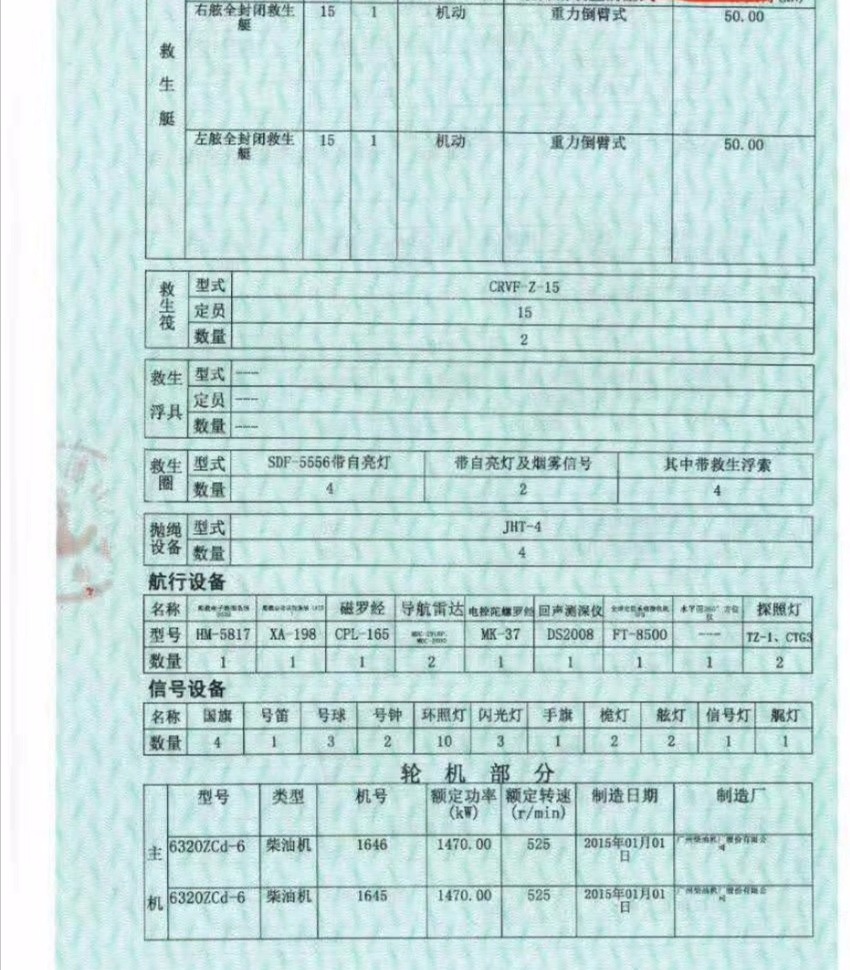 右舷全封闭救生艇 15 1 机动 重力倒臂式 50.00
救生艇
左舷全封闭救生艇 15 1 机动 重力倒臂式 50.00
救生筏 型式 CRVF-Z-15
定员 15
数量 2
救生浮具 型式 ---
定员 ---
数量 ---
救生圈 型式 SDF-5556带自亮灯 带自亮灯及烟雾信号 其中带救生浮索
数量 4 2 4
抛绳设备 型式 JHT-4
数量 4
航行设备
名称 磁罗经 导航雷达 电控陀螺罗经 回声测深仪 探照灯
型号 HM-5817 XA-198 CPL-165 MK-37 DS2008 FT-8500 --- TZ-1、CTG3
数量 1 1 1 2 1 1 1 1 2
信号设备
名称 国旗 号笛 号球 号钟 环照灯 闪光灯 手旗 桅灯 舷灯 信号灯 艉灯
数量 4 1 3 2 10 3 1 2 2 1 1
轮机部分
型号 类型 机号 额定功率(kW) 额定转速(r/min) 制造日期 制造厂
主机
6320ZCd-6 柴油机 1646 1470.00 525 2015年01月01日 广州柴油机厂股份有限公司
6320ZCd-6 柴油机 1645 1470.00 525 2015年01月01日 广州柴油机厂股份有限公司